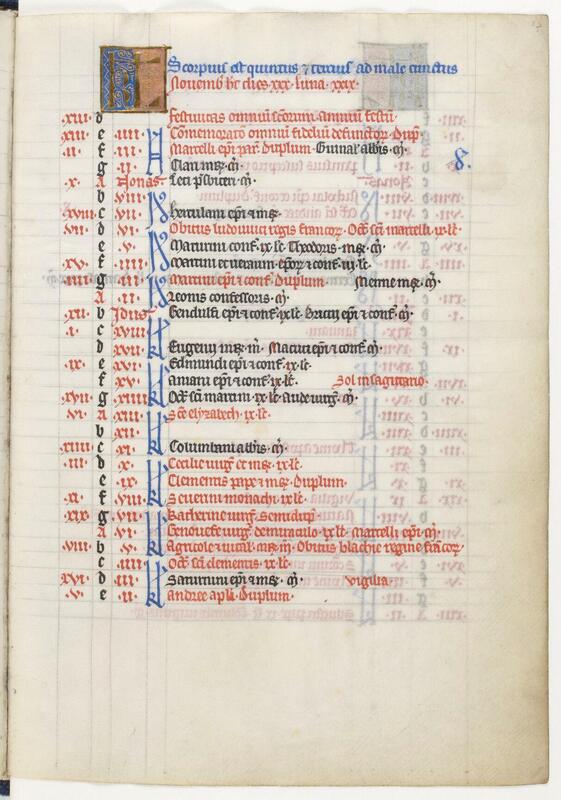 Scorpius est quintus ⁊ tercius ad male cunctus
Novemb hc dies xxx luna xxix
xxi d festivitas omnium scorum annuum festum
xiii e iiii N Comemoracio omnium fidelium defunctor dup
ii f iii Marcelli epi par Duplum Guinaili abbis m
g ii Clari mr m
x A Nonas Leti prbiteri m
b viii
xviii c vii Herculani epi ⁊ mr
vii d vi Obitus ludovici regis francor Oct sci marcelli ix lc
e v Maturini conf ix lc Theodoris mr m
xv f iiii Martini et verani epor ⁊ conf iii lc
iiii g iii Martini epi ⁊ conf Duplum Menne mr m
A ii Leonis confessoris m
xii b Idus Gendulfi epi ⁊ conf ix lc Bricii epi ⁊ conf m
i c xviii
d xvii Eugenii mr m Macuti epi ⁊ conf m
ix e xvi Edmundi epi ⁊ conf ix lc
f xv Aniani epi ⁊ conf ix lc Sol in sagittario
xvii g xiiii Oct sci martini ix lc Aude virg m
vi A xiii Sce elyzabeth ix lc
b xii
xiiii c xi Columbani abbis m
iii d x Cecilie virg et mr ix lc
e ix Clementis pape ⁊ mr Duplum
xi f viii Severini monachi ix lc
xix g vii Katherine virg Semidup
A vi Genovefe virg de miraculo ix lc Marcelli epi m
viii b v Agricole ⁊ vital mr m Obitus blachie regine francor
c iiii Oct sci clementis ix lc
xvi d iii Saturnini epi ⁊ mr m Vigilia
v e ii Andree apli Duplum